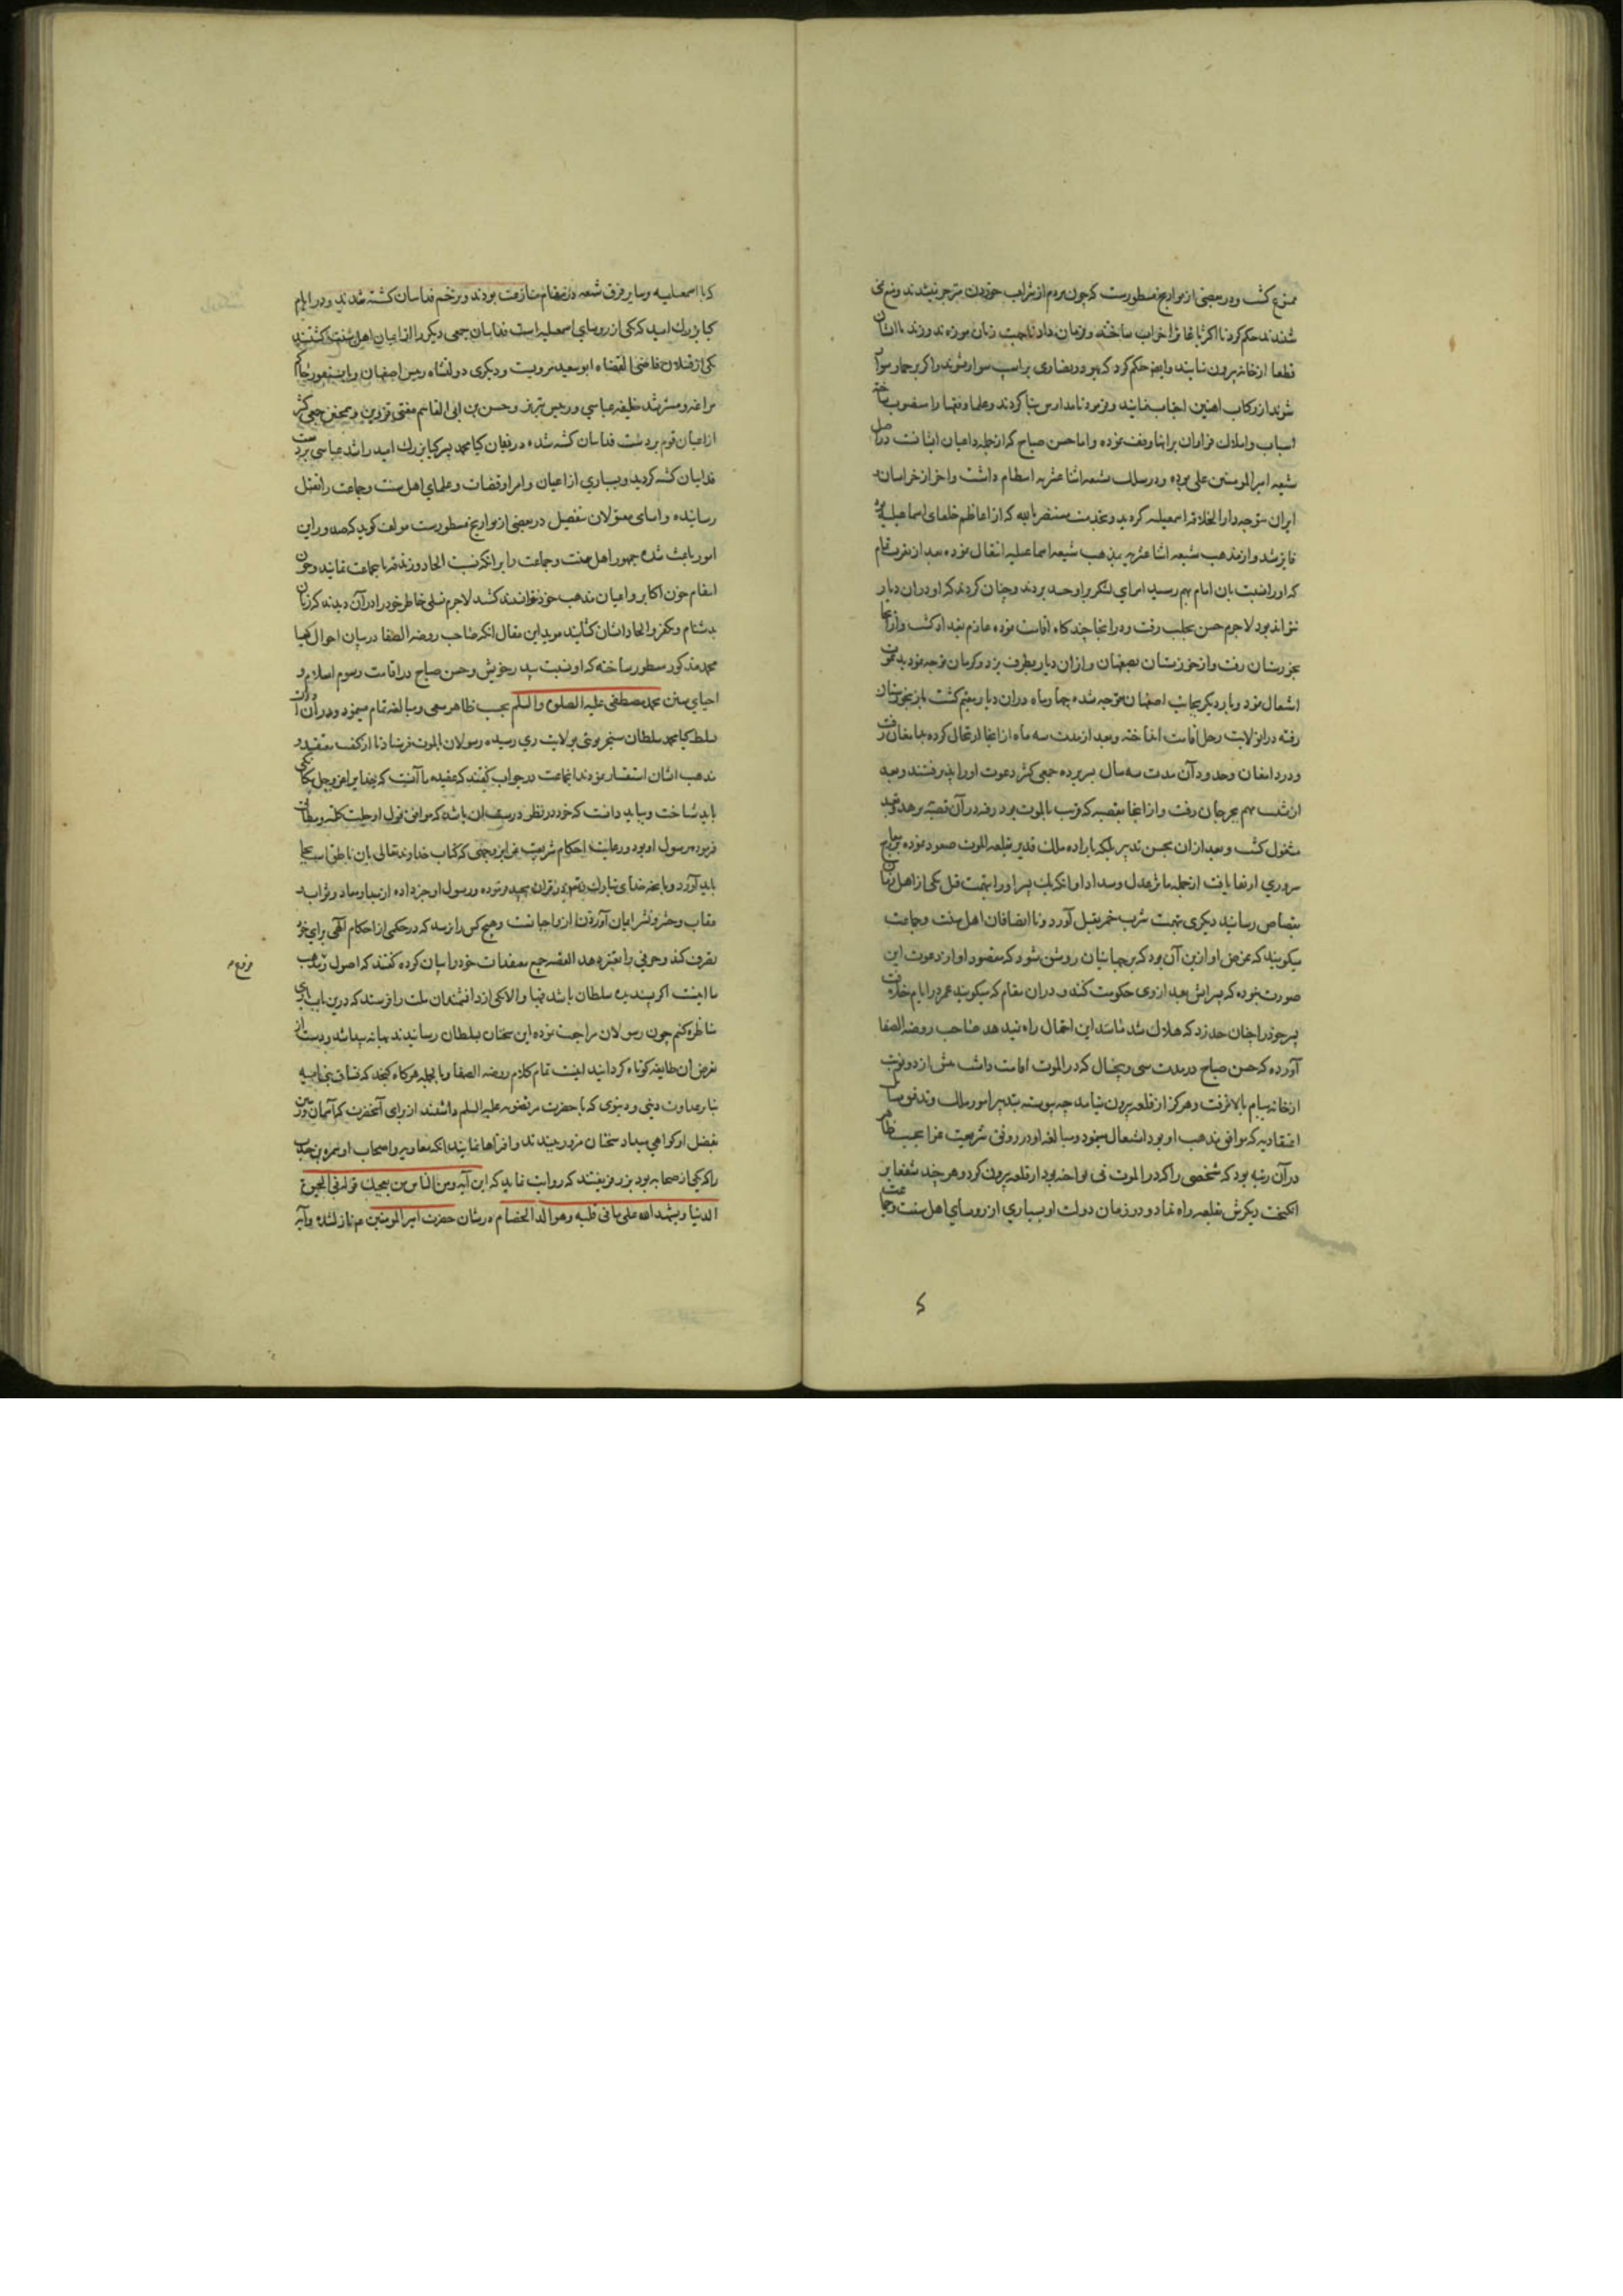 ممنوع کشت و در بعضی از تواریخ مسطورست که چون مردم از شراب خوردن منزجر نمیشدند و منع نمی
شدند حکم کرد تا اکثر باغات را خراب ساختند و فرمان داد تا بجهت زنان موزه ندوزند تا ایشان
قطعا از خانه بیرون نیایند و ایضا حکم کرد که یهود و نصاری بر اسب سوار نشوند و اکر بر حمار سوار
شوند از رکاب آهنین اجتناب نمایند و فرمود تا مدارس بنا کردند و علما و فقها را منصوب ساخته
اسباب و املاک فراوان بر آنها وقف نموده و اما حسن صباح که از جمله داعیان ایشانست در اصل
شیعه امیر المومنین علی بوده و در سلک شیعه اثنا عشریه انتظام داشت و آخر از خراسان
ایران متوجه دار الخلافه اسمعیلیه کردید و بخدمت مستنصر بالله که از اعاظم خلفای اسماعیلیه بود
فایز شد و از مذهب شیعه اثنا عشریه بمذهب شیعه اسماعیلیه انتقال نموده بعد از تقرب تمام
که او را نسبت بان امام بهم رسید امرای لشکر بر او حسد بردند و چنان کردند که او در آن دیار
نتواند بود لاجرم حسن بحلب رفت و در آنجا چند کاه اقامت نموده عازم بغداد کشت و از آنجا
بخوزستان رفت و از خوزستان بصفهان و از آن دیار بطرف یزد و کرمان توجه نمود بدعوت
اشتغال نمود و بار دیکر بجانب اصفهان متوجه شده چهار ماه در آن دیار مقیم کشت باز بخوزستان
رفته در آن ولایت رحل اقامت انداخته و بعد از مدت سه ماه از آنجا ارتحال کرده بدامغان رفت
و در دامغان و حدود آن مدت سه سال بسر برده جمعی کثیر دعوت او را پذیرفتند و بعد
از شب بهم بجرجان رفت و از آنجا بقصبه که قرب بالموت بود رفته در آن قصبه بزهد و تعبد
مشغول کشت و بعد از آن بحسن تدبیر بلکه باراده ملک قدیر بقلعه الموت صعود نموده بر معارج
سروری ارتقا یافت از جمله مآثر عدل و سداد او آنکه یک پسر او را بتهمت قتل یکی از اهل زمان
بقصاص رسانید دیکری بتهمت شرب خمر بقتل آورد و نا انصافان اهل سنت و جماعت
میکویند که غرض او ازین آن بود که بر جهانیان روشن شود که مقصود او از دعوت این
صورت نبوده که پسرانش بعد از وی حکومت کنند و در آن مقام که میکویند عمر در ایام خلافت
پسر خود را چنان حد زد که هلاک شد مانند این احتمال راه نمیدهد صاحب روضه الصفا
آورده که حسن صباح در مدت سی و پنجسال که در الموت اقامت داشت بیش از دو نوبت
از خانه ببام بالا نرفت و هرکز از قلعه بیرون نیامد چه پیوسته بتدبیر امور ملک و تدوین مسائل
اعتقادیه که موافق مذهب او بود اشتغال مینمود و مبالغه او در رونق شریعت غرا بحسب ظاهر
در آن رتبه بود که شخصی را که در الموت نی نواخته بود از قلعه بیرون کرد و هر چند شفعا بر
انکیخت دیکرش بقلعه راه نداد و در زمان دولت او بسیاری از روسای اهل سنت و جماعت
که با اسمعیلیه و سایر فرق شیعه در مقام منازعت بودند و بزخم فداییان کشته شدند و در ایام
کیا بزرک امید که یکی از روسای اسمعیلیه است فداییان جمعی دیکر را از اعیان اهل سنت کشتند
یکی از قتیلان قاضی القضاه ابو سعید هرویست و دیکری دولتشاه رییس اصفهان و سنقر حاکم
مراغه و مسترشد خلیفه عباسی و رییس تبریز و حسن بن ابی القاسم مفتی قزوین و همچنین جمعی کثیر
از اعیان قوم بر دست فداییان کشته شدند و در زمان کیا محمد پسر کیا بزرک امید راشد عباسی بر دست
فداییان کشته کردید و بسیاری از اعیان و امرا و قضات و علمای اهل سنت و جماعت را بقتل
رسانیده و اسامی مقتولان بتفصیل در بعضی از تواریخ مسطورست مولف کوید که صدور این
امور باعث شده جمهور اهل سنت و جماعت را بر آنکه نسبت الحاد و زندقه با جماعت نمایند و چون
انتقام خون اکابر و اعیان مذهب خود نتوانستند کشید لاجرم تسلی خاطر خود را در آن دیدند که زبان
بدشنام و تکفیر و الحاد ایشان کشایند موید این مقال آنکه صاحب روضه الصفا در بیان احوال کیا
محمد مذکور مسطور ساخته که او بسنت پدر خویش و حسن صباح در اقامت رسوم اسلام و
احیای سنن محمد مصطفی علیه الصلوة والسلم بحسب ظاهر سعی و مبالغه تمام مینمود و در آن اوان
سلطنت کیا محمد سلطان سنجر نوبتی بولایت ری رسیده رسولان بالموت فرستاد تا از کیفیت عقیده و
مذهب ایشان استفسار نمودند آنجماعت در جواب کفتند که عقیده ما آنست که خدایرا عز و جل بیکانکی
باید شناخت و بباید دانست که خرد و نظر درست آن باشد که موافق قول او جلت کلمته و مطابق
فرموده رسول او بود و رعایت احکام شریعت غرا بر وجهی که کتاب خداوند تعالی بان ناطق است بجا
باید آورد و بآنچه خدای تبارک و تعالی در قران مجید فرموده و رسول او خبر داده از مبدا و معاد و ثواب
عقاب و حشر و نشر ایمان آوردن از واجبانست و هیچ کس را نرسد که در حکمی از احکام الهی برای خود
تصرف کند و حرفی را تغییر دهد القصه جمیع معتقدات خود را بیان کرده کفتند که اصول و مذهب
ما اینست اکر پسندیده سلطان باشد فبها و الا یکی از دانشمندان ملت را فرستد که درین باب با وی
مناظره کنیم چون رسولان مراجعت نموده این سخنان بسلطان رسانیدند بهانه پیدا شد و دست از
تعرض آن طایفه کوتاه کردانید اینست تمام کلام روضه الصفا و بالجمله هرکاه کنجد که فساق بنی امیه
بنابر عداوت دینی و دنیوی که با حضرت مرتضویه علیه السلم داشتند از برای آنحضرت که آسمان و زمین
بفضل او کواهی میداد سخنان مزور ببندند و افتراها نمایند تا آنکه معاویه و اصحاب او سمره بن جندب
را که یکی از صحابه بود بزر بفریفتند که روایت نماید که این آیه ومن الناس من یعجبك قوله فی الحیوة
الدنیا ویشهد الله علی ما فی قلبه وهو الد الخصام در شان حضرت امیر المومنین ع م نازل شده و آیه